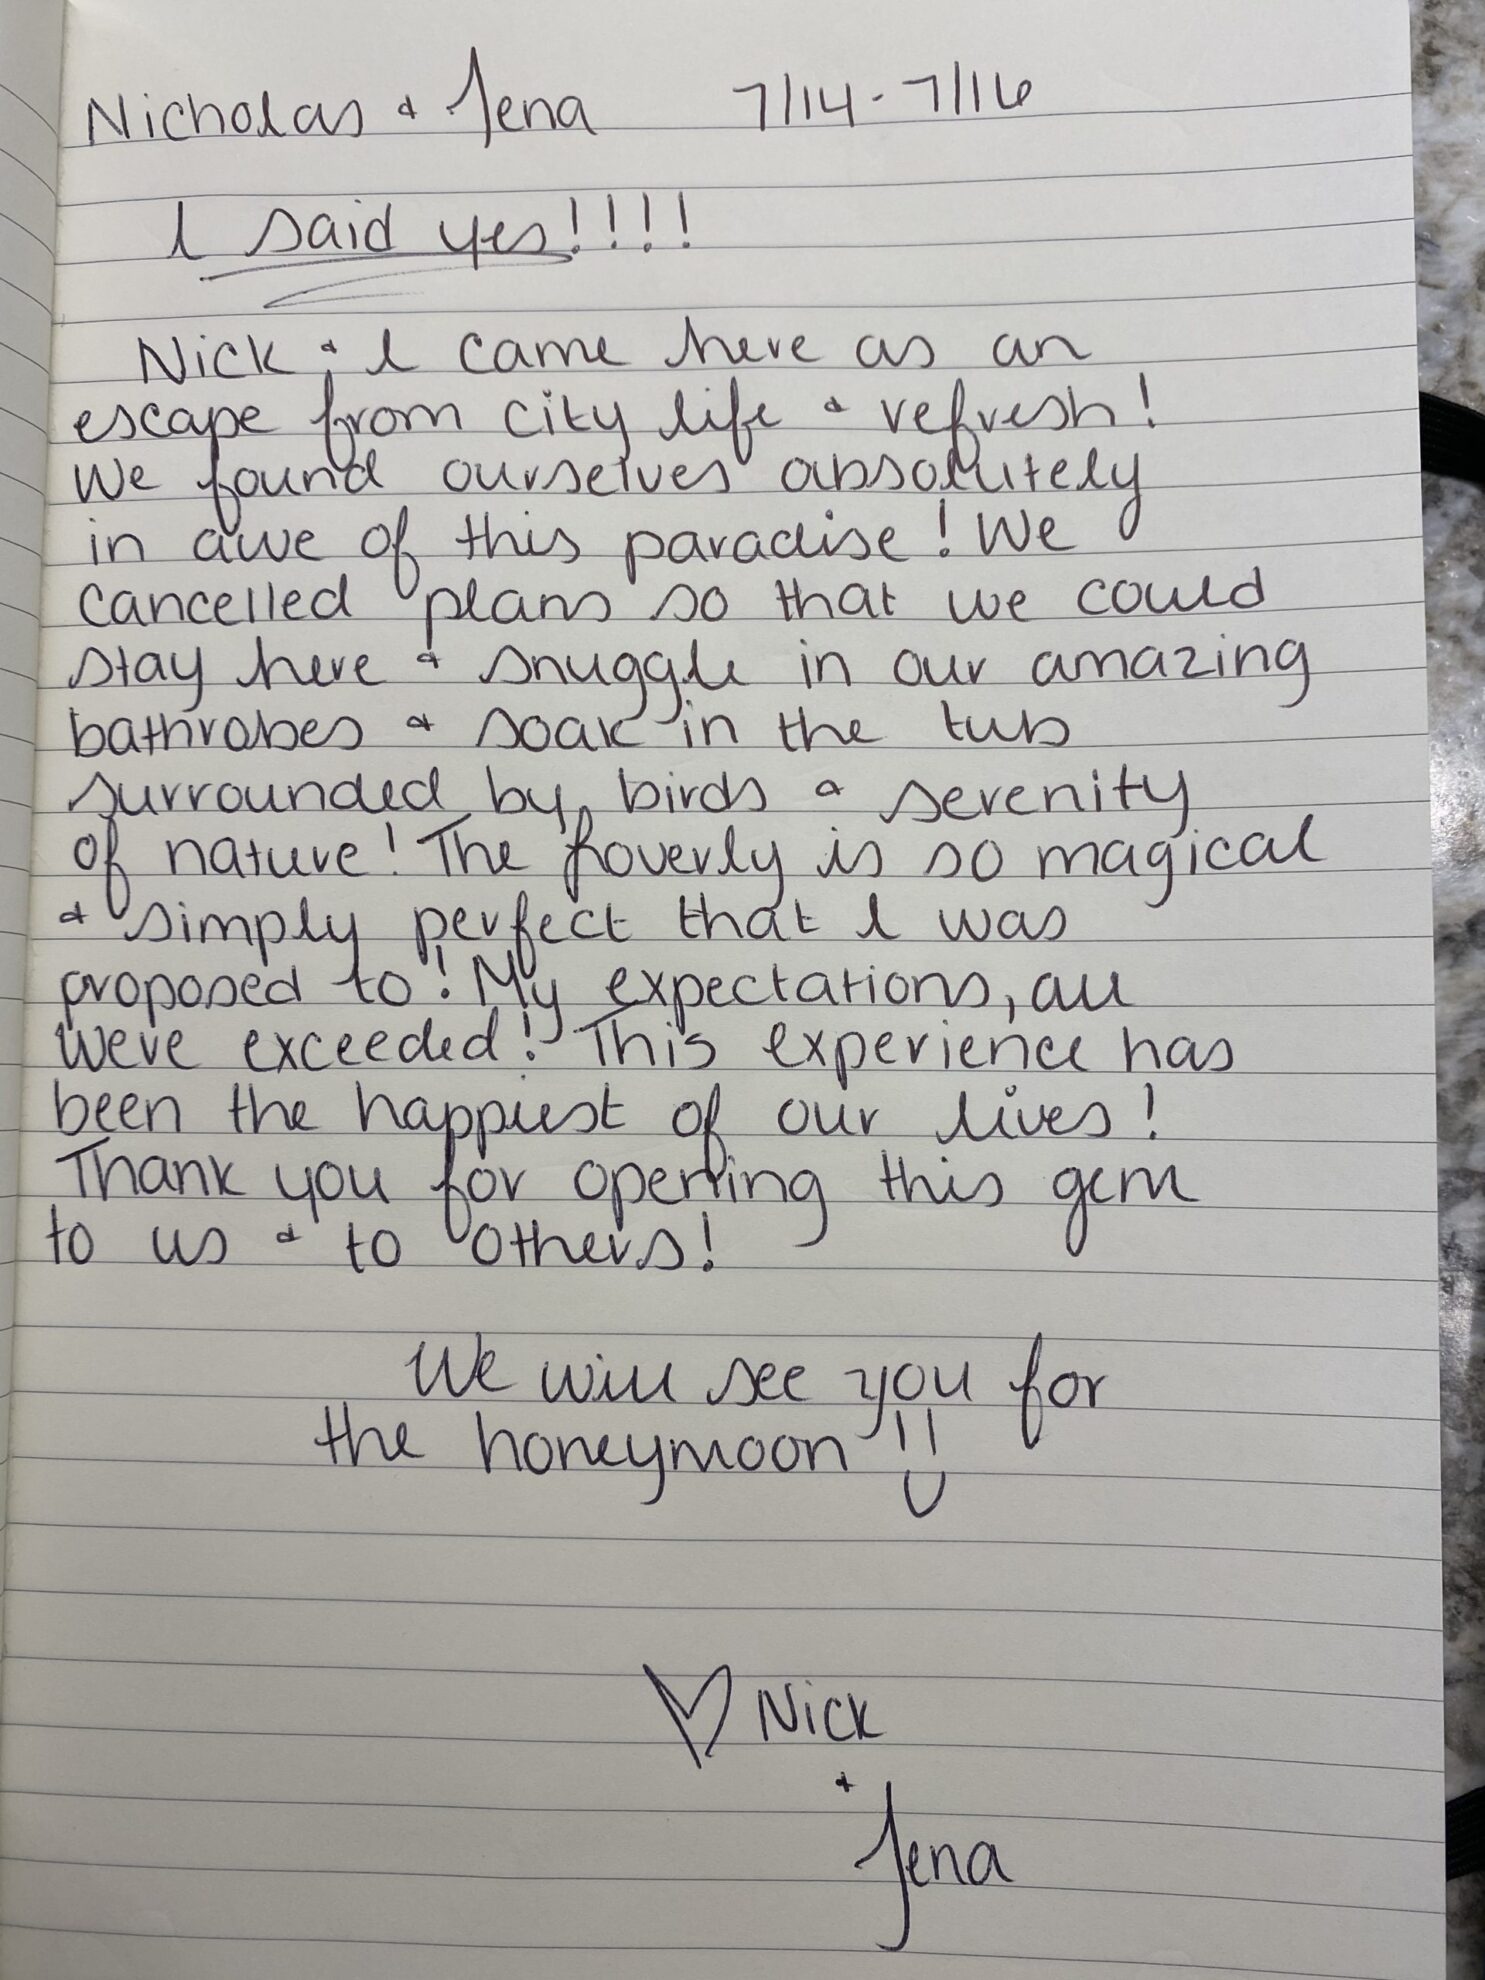 Nicholas & Jena 7/14 - 7/16
I said yes!!!!
Nick & I came here as an
escape from city life & refresh!
We found ourselves absolutely
in awe of this paradise! We
cancelled plans so that we could
stay here & snuggle in our amazing
bathrobes & soak in the tub
surrounded by birds & serenity
of nature! The hoverly is so magical
& simply perfect that I was
proposed to! My expectations, all
were exceeded! This experience has
been the happiest of our lives!
Thank you for opening this gem
to us & to others!
We will see you for
the honeymoon!!
Nick
&
Jena